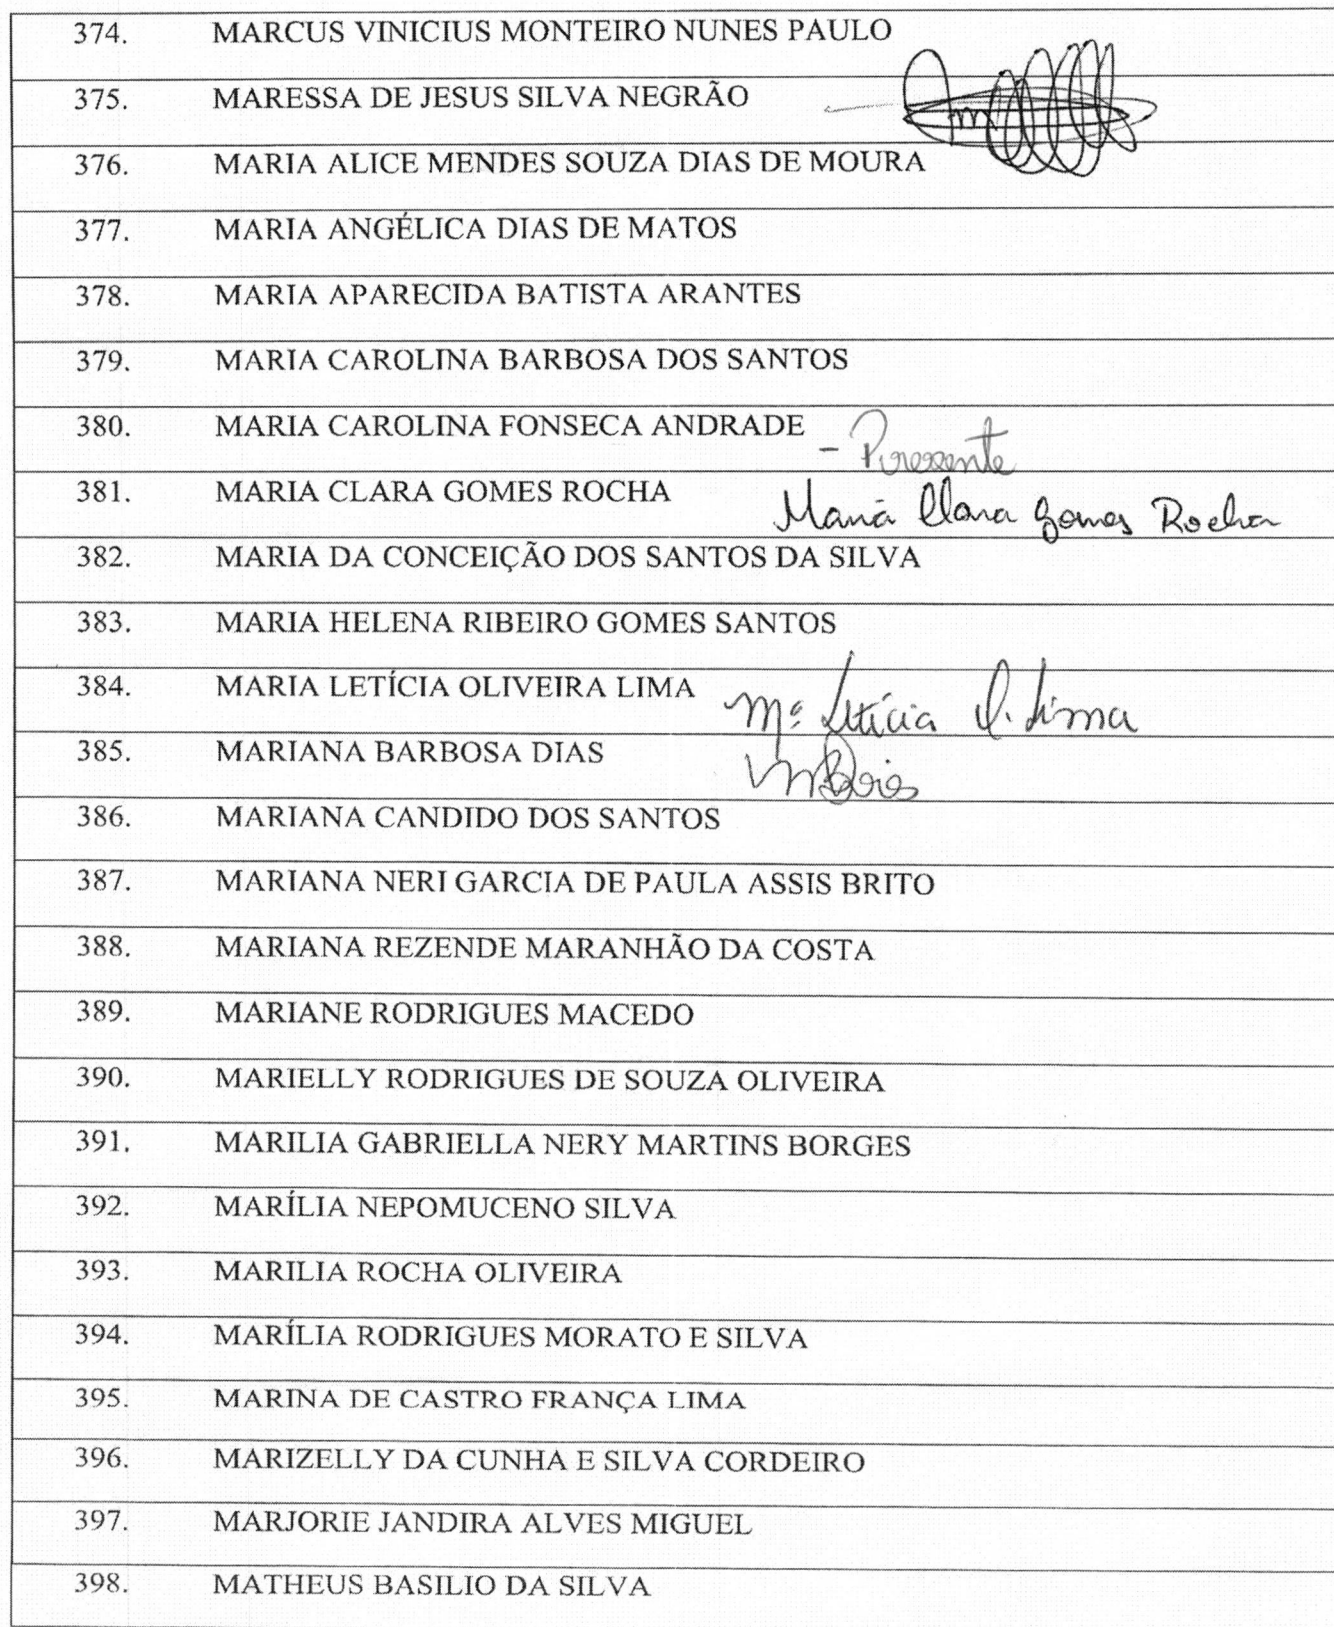 374. MARCUS VINICIUS MONTEIRO NUNES PAULO
375. MARESSA DE JESUS SILVA NEGRÃO
376. MARIA ALICE MENDES SOUZA DIAS DE MOURA
377. MARIA ANGÉLICA DIAS DE MATOS
378. MARIA APARECIDA BATISTA ARANTES
379. MARIA CAROLINA BARBOSA DOS SANTOS
380. MARIA CAROLINA FONSECA ANDRADE - Presente
381. MARIA CLARA GOMES ROCHA Maria Clara Gomes Rocha
382. MARIA DA CONCEIÇÃO DOS SANTOS DA SILVA
383. MARIA HELENA RIBEIRO GOMES SANTOS
384. MARIA LETÍCIA OLIVEIRA LIMA Mª Letícia O. Lima
385. MARIANA BARBOSA DIAS MBDias
386. MARIANA CANDIDO DOS SANTOS
387. MARIANA NERI GARCIA DE PAULA ASSIS BRITO
388. MARIANA REZENDE MARANHÃO DA COSTA
389. MARIANE RODRIGUES MACEDO
390. MARIELLY RODRIGUES DE SOUZA OLIVEIRA
391. MARILIA GABRIELLA NERY MARTINS BORGES
392. MARÍLIA NEPOMUCENO SILVA
393. MARILIA ROCHA OLIVEIRA
394. MARÍLIA RODRIGUES MORATO E SILVA
395. MARINA DE CASTRO FRANÇA LIMA
396. MARIZELLY DA CUNHA E SILVA CORDEIRO
397. MARJORIE JANDIRA ALVES MIGUEL
398. MATHEUS BASILIO DA SILVA